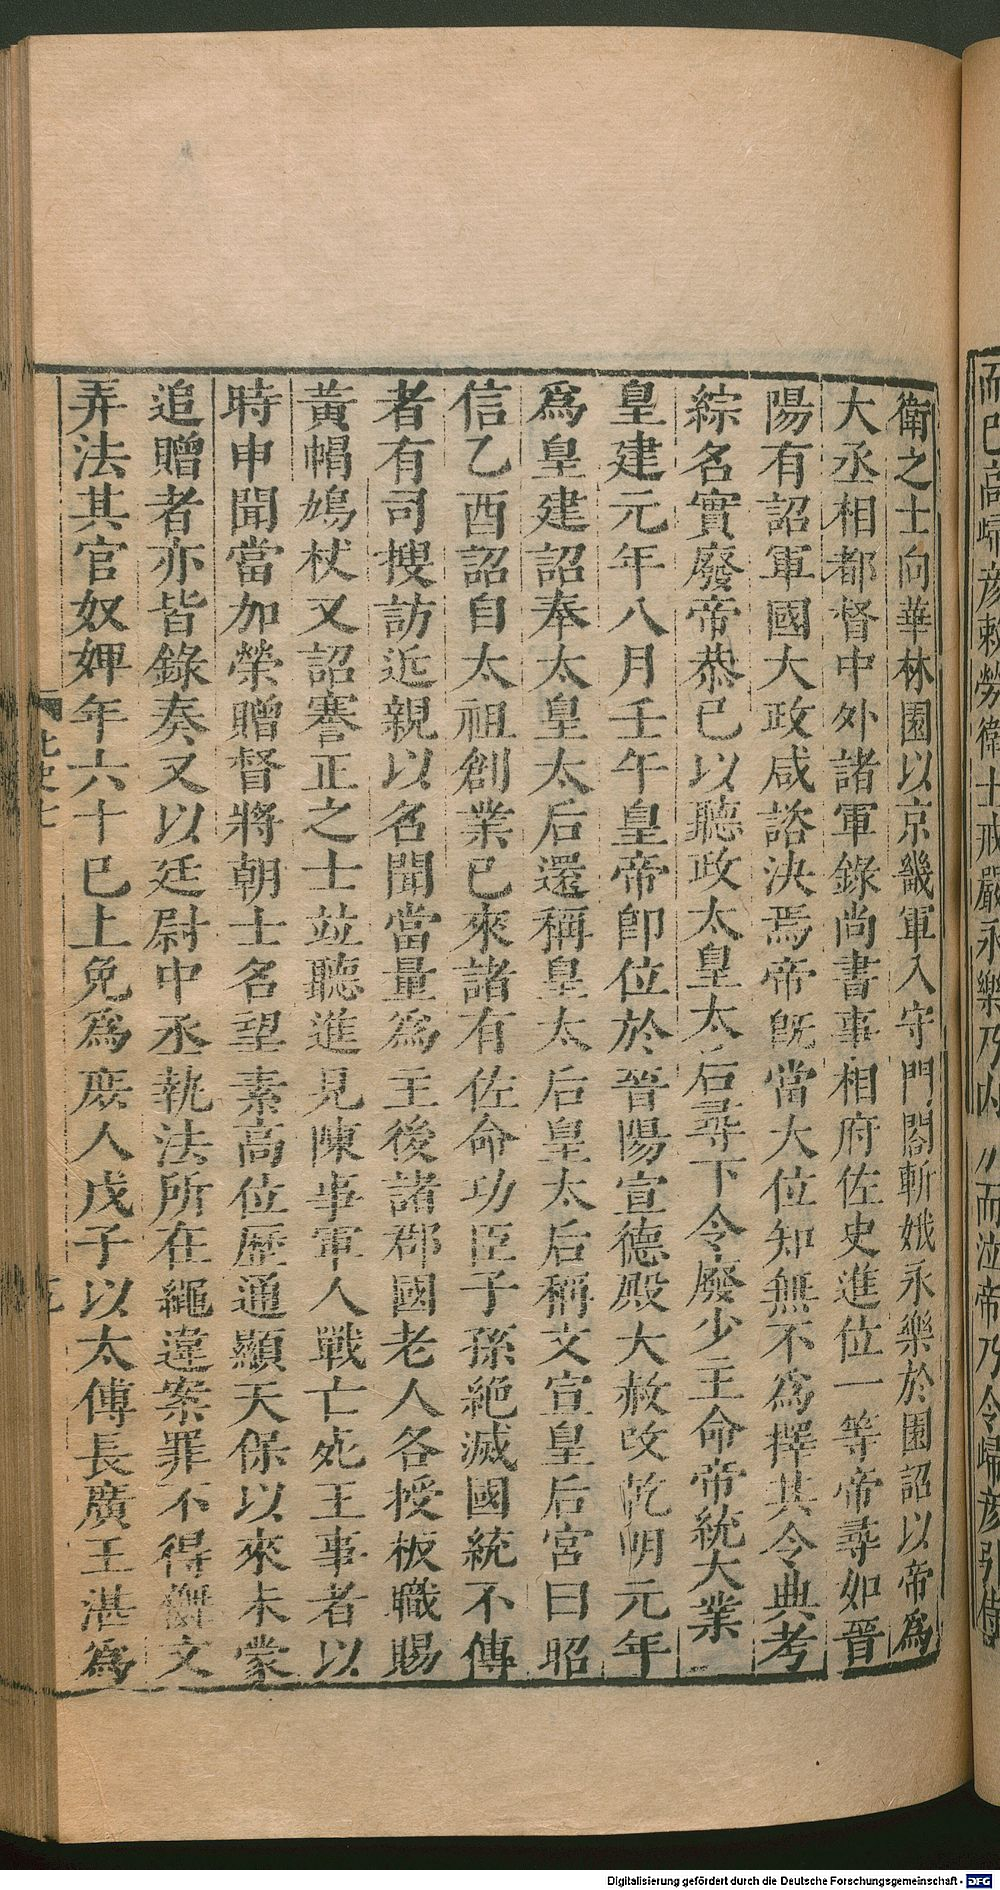 衛之士向華林園以京畿軍入守門閤斬娥永樂於園詔以帝為
大丞相都督中外諸軍錄尚書事相府佐史進位一等帝尋如晉
陽有詔軍國大政咸諮決焉帝旣當大位知無不為擇其令典考
綜名實廢帝恭巳以聽政太皇太后尋下令廢少主命帝統大業
皇建元年八月壬午皇帝卽位於晉陽宣德殿大赦改乾明元年
爲皇建詔奉太皇太后還稱皇太后皇太后稱文宣皇后宮曰昭
信乙酉詔自太祖創業巳來諸有佐命功臣子孫絶滅國統不傳
者有司搜訪近親以名聞當量為主後諸郡國老人各授板職賜
黃帽鳩杖又詔謇正之士並聽進見陳事軍人戰亡死王事者以
時申聞當加榮贈督將朝士名望素高位歷通顯天保以來未蒙
追贈者亦皆錄奏又以廷尉中丞執法所在繩違案罪不得儛文
弄法其官奴婢年六十巳上免為庶人戊子以太傅長廣王湛為
北史七
而巳高歸彦敕勞衛士戒嚴永樂乃內刀而泣帝乃令歸彦引侍
Digitalisierung gefördert durch die Deutsche Forschungsgemeinschaft - DFG